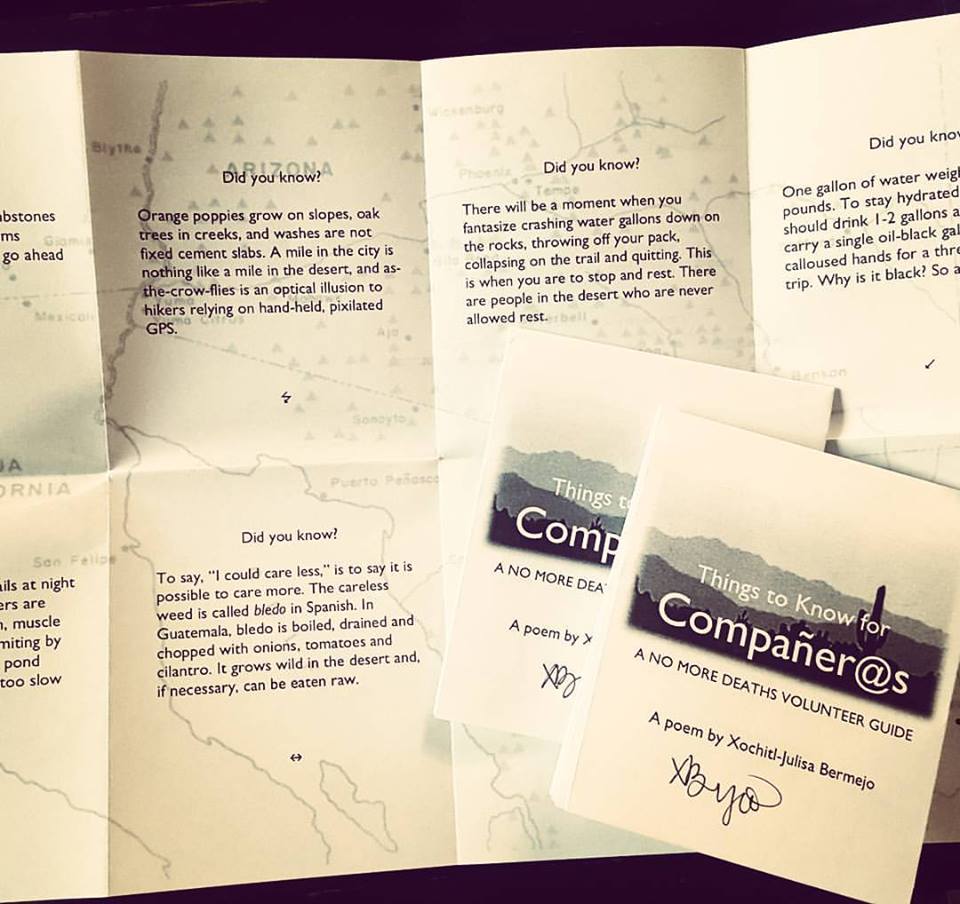 bstones
ms
go ahead
Blythe
ARIZONA
Did you know?
Orange poppies grow on slopes, oak
trees in creeks, and washes are not
fixed cement slabs. A mile in the city is
nothing like a mile in the desert, and as-
the-crow-flies is an optical illusion to
hikers relying on hand-held, pixilated
GPS.
Mexicali
Citrus
Ajo
Sonoyta
Wickenburg
Phoenix
Tempe
Did you know?
There will be a moment when you
fantasize crashing water gallons down on
the rocks, throwing off your pack,
collapsing on the trail and quitting. This
is when you are to stop and rest. There
are people in the desert who are never
allowed rest.
Did you know
One gallon of water weigh
pounds. To stay hydrated
should drink 1-2 gallons a
carry a single oil-black gal
calloused hands for a thre
trip. Why is it black? So a
Benson
IA
ORNIA
Puerto Peñasco
San Felipe
ails at night
ers are
, muscle
miting by
pond
too slow
Did you know?
To say, “I could care less,” is to say it is
possible to care more. The careless
weed is called bledo in Spanish. In
Guatemala, bledo is boiled, drained and
chopped with onions, tomatoes and
cilantro. It grows wild in the desert and,
if necessary, can be eaten raw.
Things t
Comp
A NO MORE DEA
A poem by X
Things to Know for
Compañer@s
A NO MORE DEATHS VOLUNTEER GUIDE
A poem by Xochitl-Julisa Bermejo